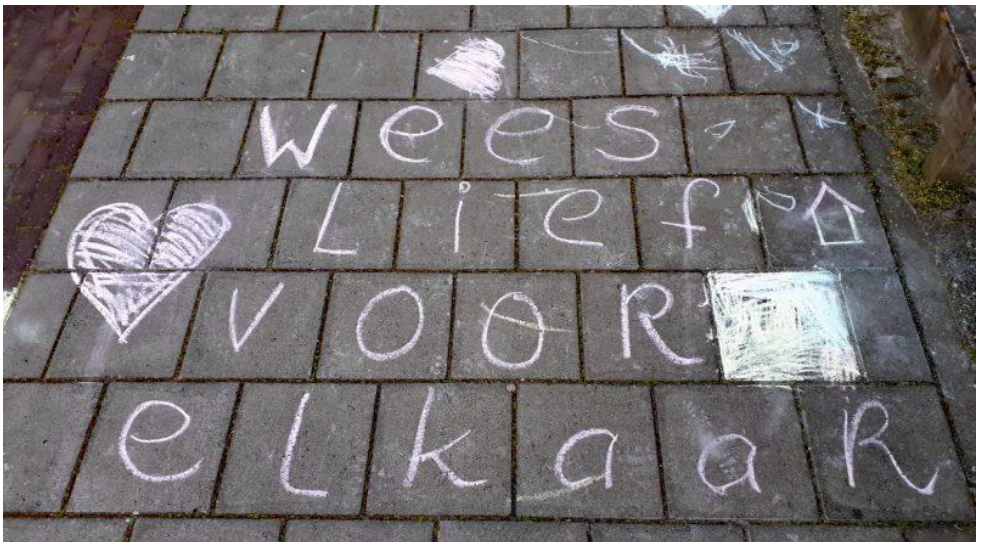 Wees
Lief
VOOR
elkaaR